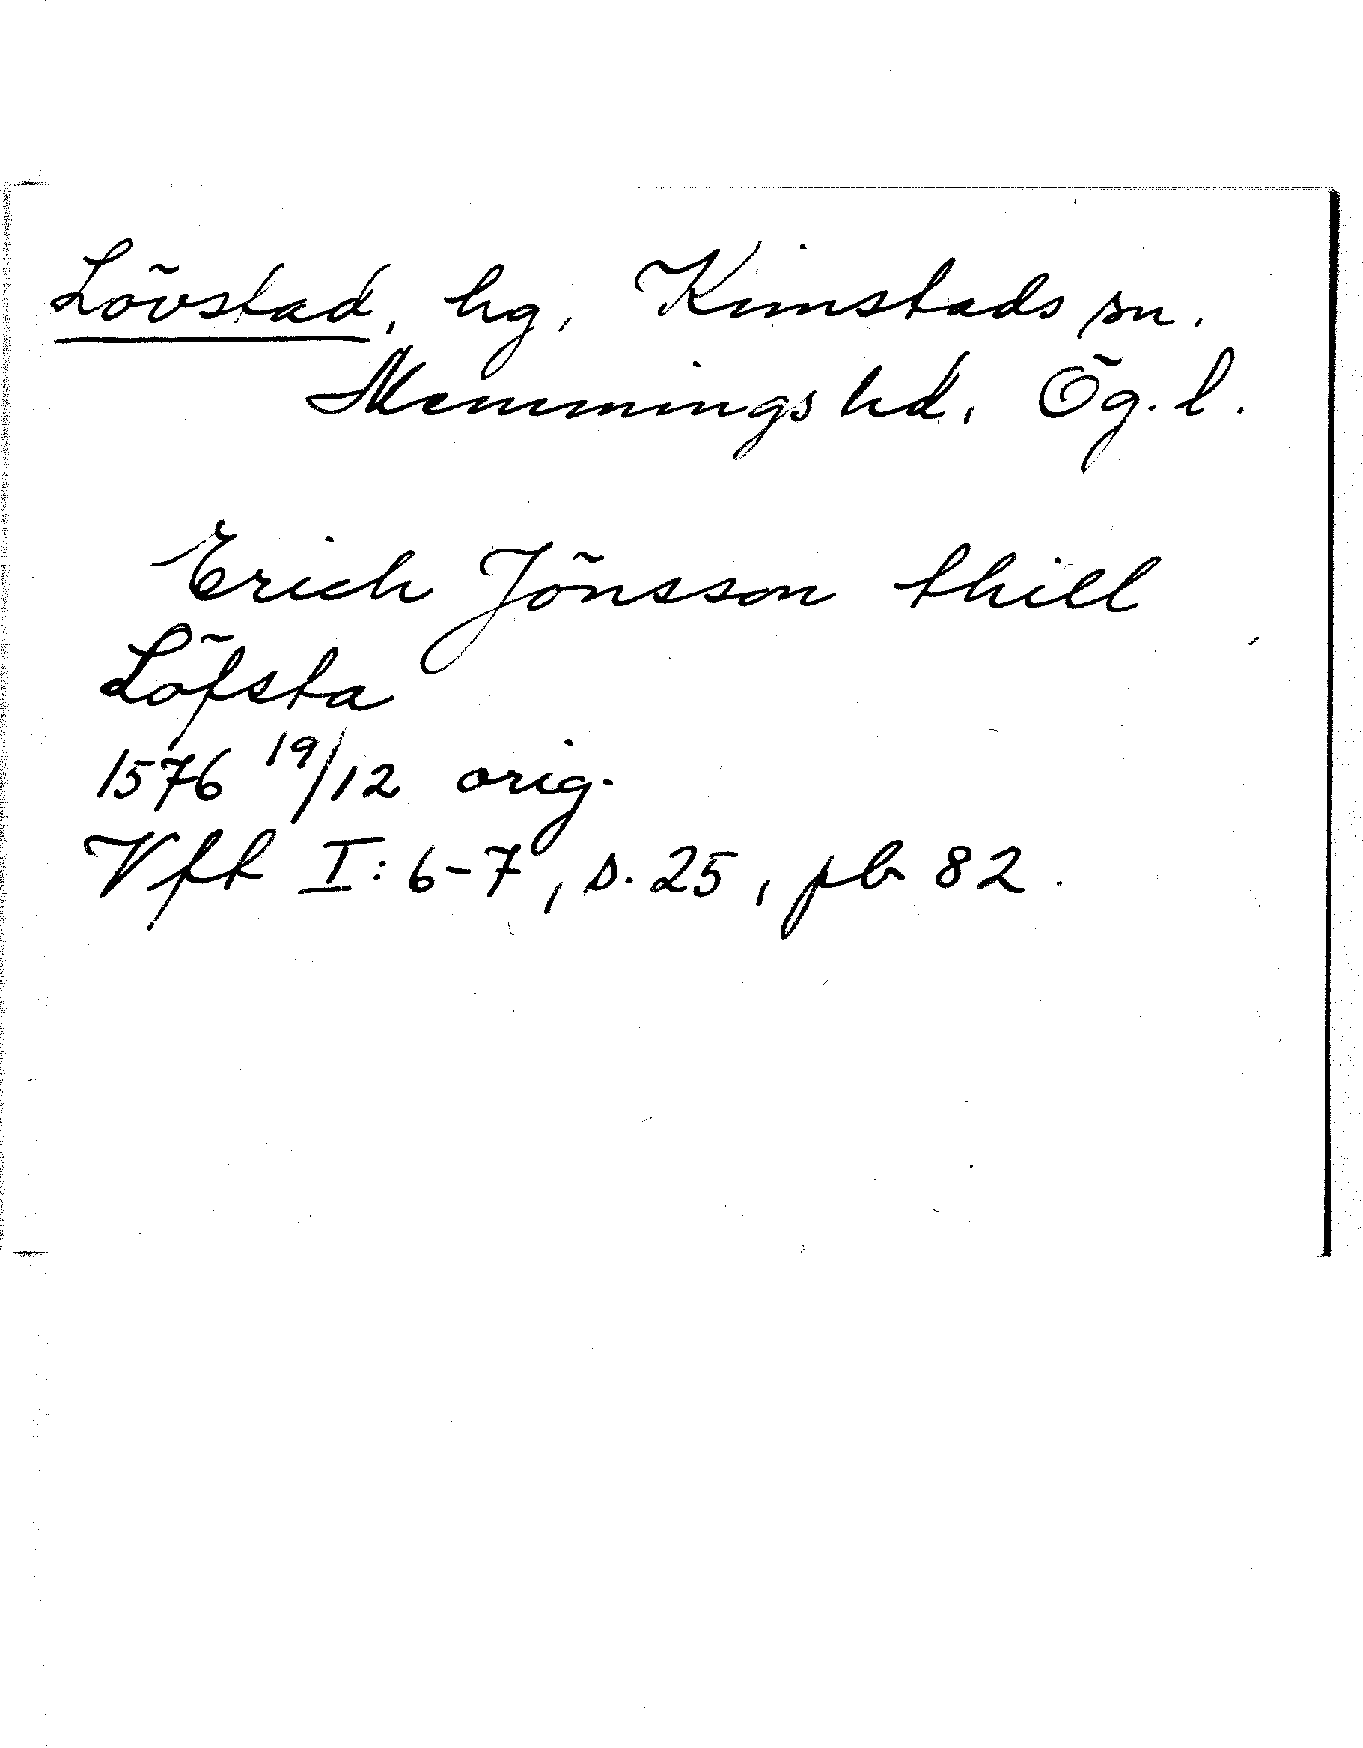 Lövstad, hg, Kimstads sn.
Memmings hd, Ög. l.
Erich Jönsson thill
Löfsta
1576 19/12 orig.
Vfk I: 6-7, s. 25, pb 82.